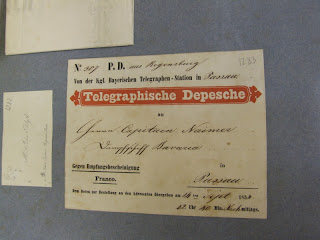 No 307 P. D. aus Regensburg
Von der Kgl. Bayerischen Telegraphen-Station in Passau
Telegraphische Depesche
an
Herrn Capitaen
Dampfschiff Bavaria
in
Gegen Empfangsbescheinigung
Passau
Franco.
Dem Boten zur Bestellung an den Adressaten übergeben am 14 ten Sept.
12 Uhr 40 Min. Nachmittags.